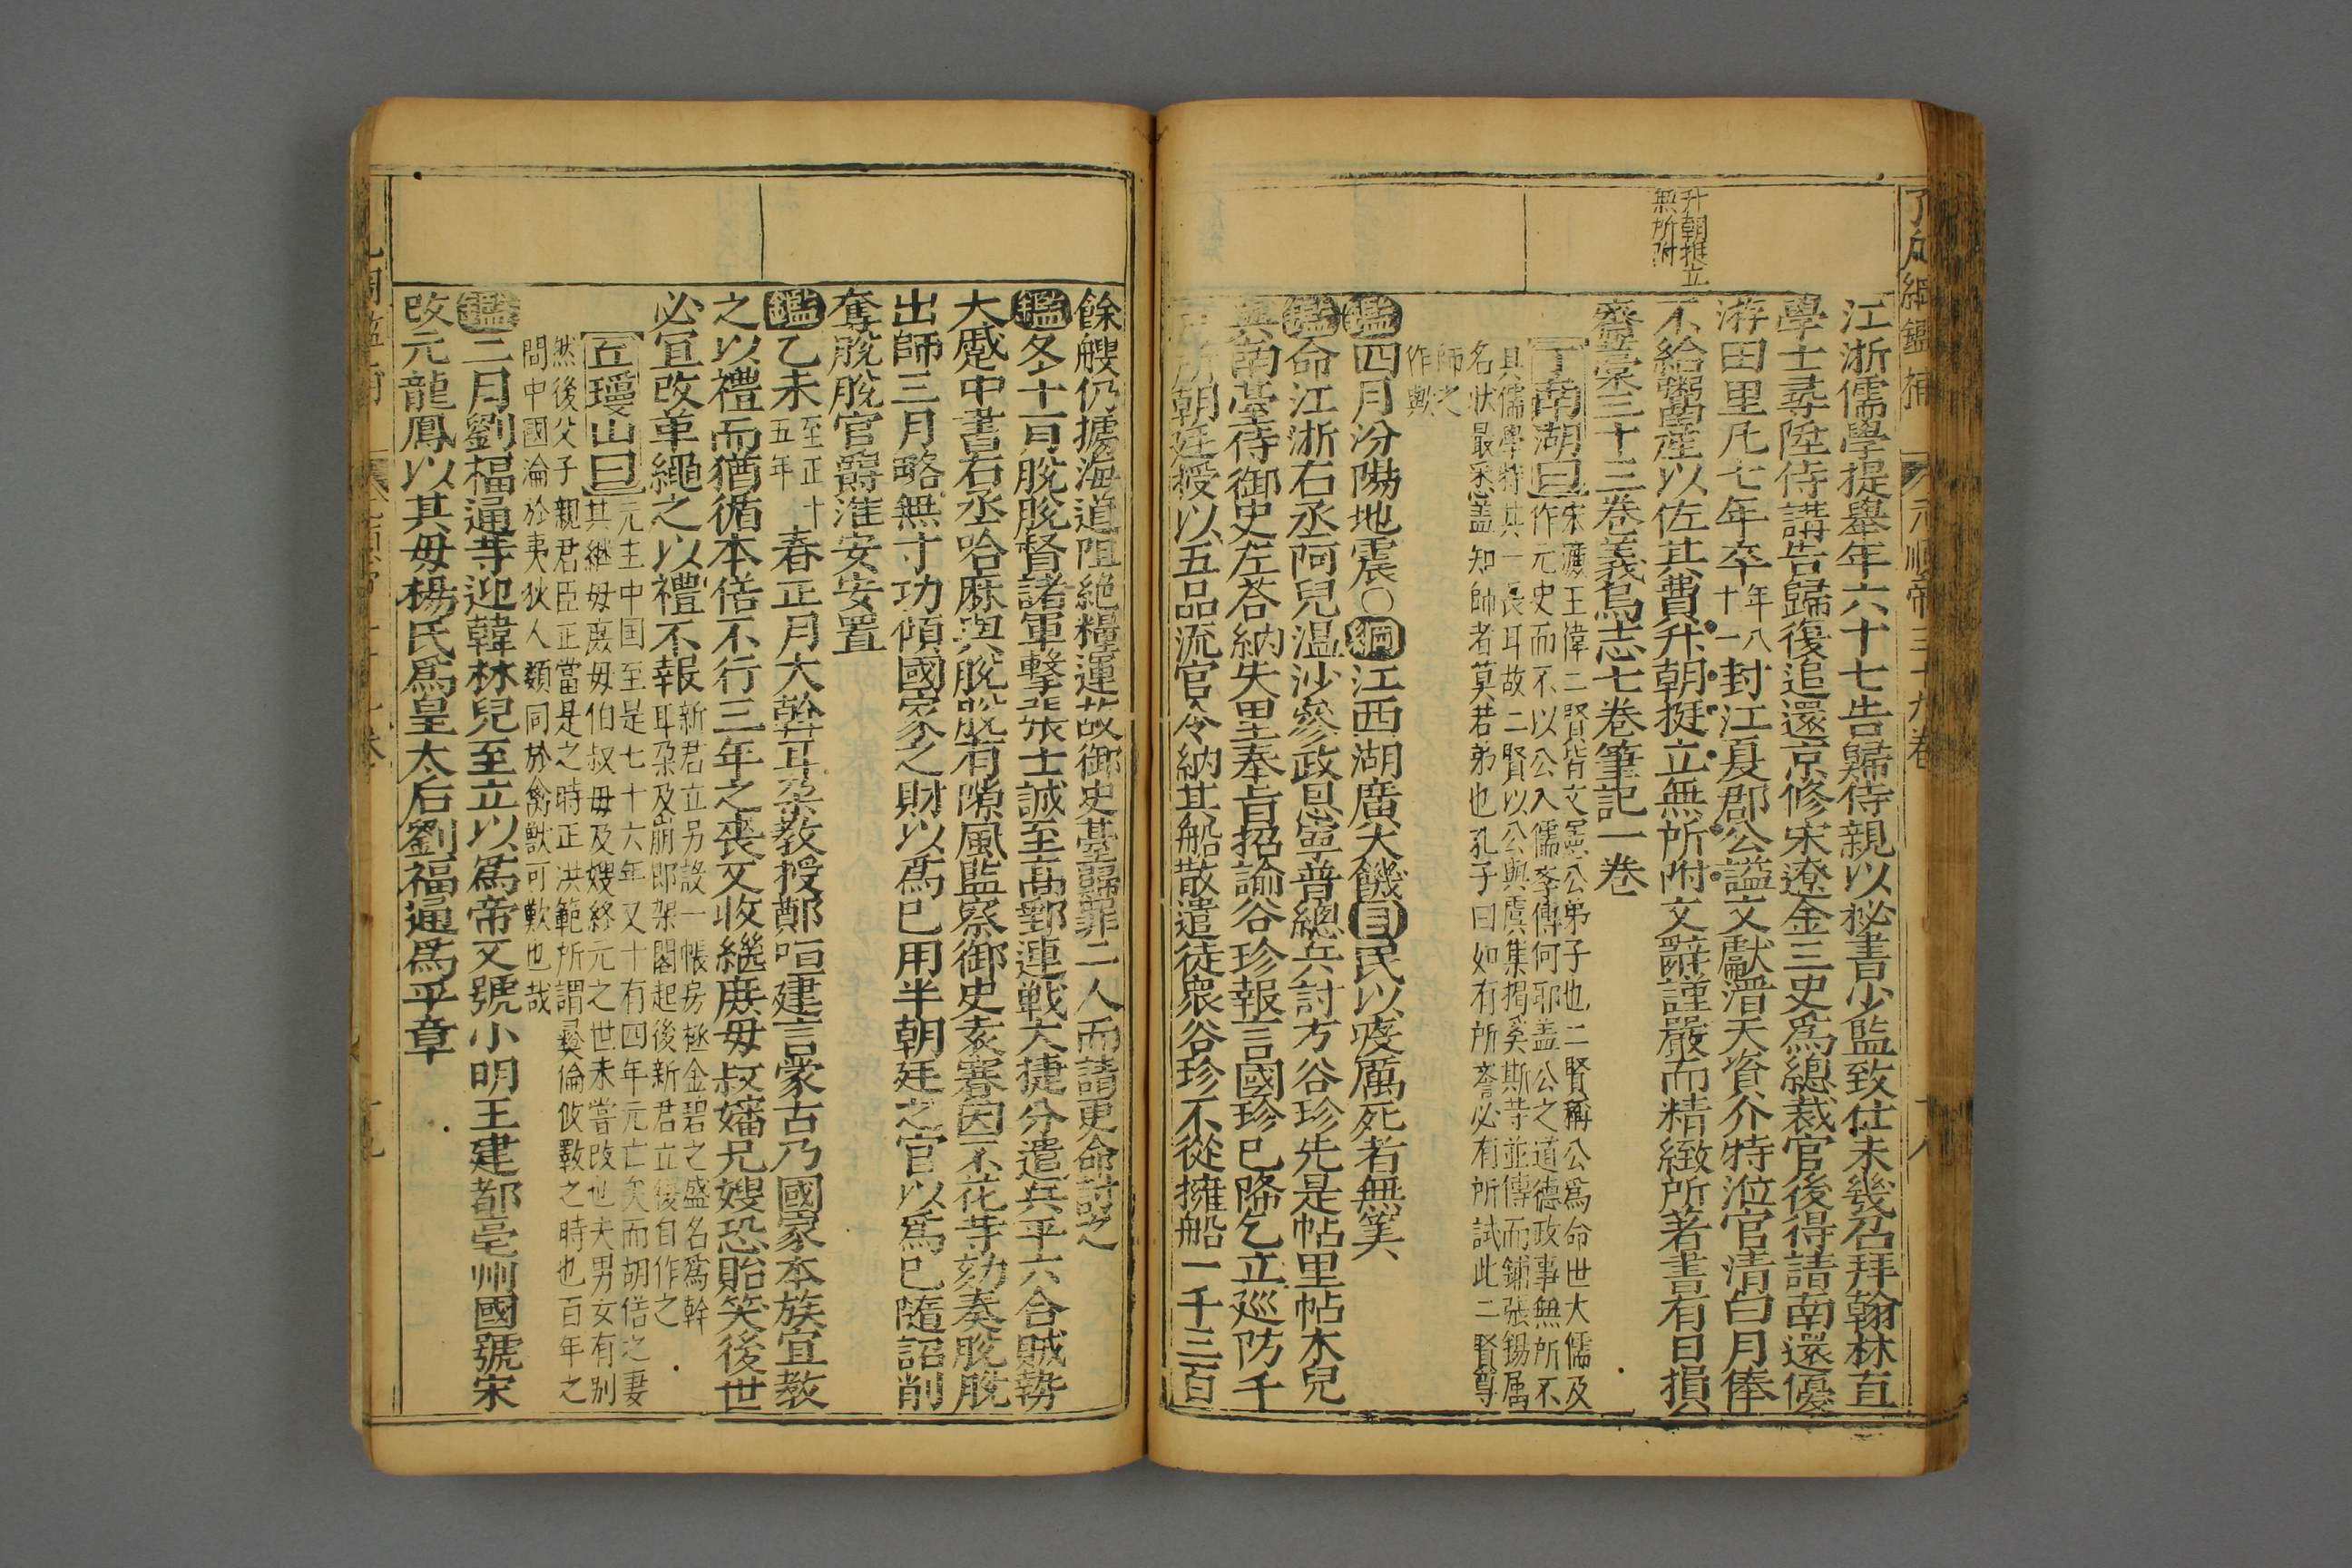 了凡綱鑑補
元順帝三十九卷
十八
升朝挺立
無所附
江浙儒學提舉年六十七告歸侍親以祕書少監致仕未幾召拜翰林直
學士尋陞侍講告歸復追還京修宋遼金三史爲總裁官後得請南還優
游田里凡七年卒年八十一封江夏郡公謚文獻溍天資介特涖官清白月俸
不給鬻産以佐其費升朝挺立無所附文辭謹嚴而精緻所著書有日損
齋藁三十三卷義烏志七卷筆記一卷
丁南湖曰宋濂王偉二賢皆文憲公弟子也二賢稱公爲命世大儒及
作元史而不以公入儒李傳何耶盖公之道德政事無所不
具儒學特其一長耳故二賢以公與虞集揭奚斯䓁並傳而鋪張鍚属
名狀最悉盖知師者莫若弟也孔子曰如有所譽必有所試此二賢尊
師之
作歟
鑑四月汾陽地震〇綱江西湖廣大饑目民以疫厲死者無筭
鑑命江浙右丞阿兒温沙參政恩寧普總兵討方谷珍先是帖里帖木兒
與南臺侍御史左荅納失里奉旨招諭谷珍報言國珍已降乞立巡防千
戸所朝廷授以五品流官令納其船散遣徒衆谷珍不從擁船一千三百
餘艘仍據海道阻絶糧運故御史臺歸罪二人而請更命討之
鑑冬十一月脫脫督諸軍擊張士誠至高郵連戰大捷分遣兵平六合賊勢
大蹙中書右丞哈麻與脫脫有隙風監察御史袁賽因不花䓁劾奏脫脫
出師三月略無寸功傾國家之財以爲己用半朝廷之官以爲己隨詔削
奪脫脫官爵淮安安置
鑑乙未至正十五年春正月大斡耳朶教授鄭咺建言蒙古乃國家本族宜教
之以禮而猶循本俗不行三年之喪又收繼庶母叔嬸兄嫂恐貽笑後世
必宜改革繩之以禮不報新君立另設一帳房極金碧之盛名爲斡
耳朶及崩即架閣起後新君立復自作之
丘瓊山曰元主中国至是七十六年又十有四年元亡矣而胡俗之妻
其継母庶母伯叔母及嫂終元之世未嘗改也夫男女有别
然後父子親君臣正當是之時正洪範所謂彛倫攸斁之時也百年之
間中國淪於夷狄人類同於禽獸可歎也哉
鑑二月劉福通䓁迎韓林兒至立以爲帝又號小明王建都亳州國號宋
改元龍鳳以其母楊氏爲皇太后劉福通爲平章
十九